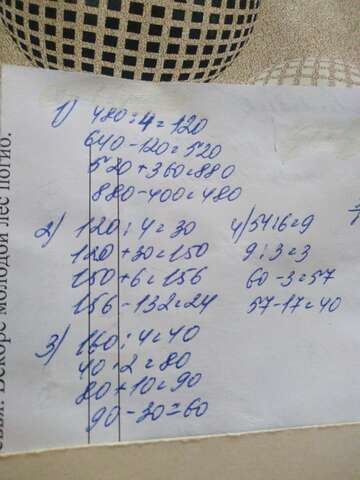 1) 480:4=120
640-120=520
520+360=880
880-400=480
2) 120:4=30
120+30=150
150+6=156
156-132=24
3) 160:4=40
40·2=80
80+10=90
90-30=60
4) 54:6=9
9:3=3
60-3=57
57-17=40
Вскоре молодой лес погиб.